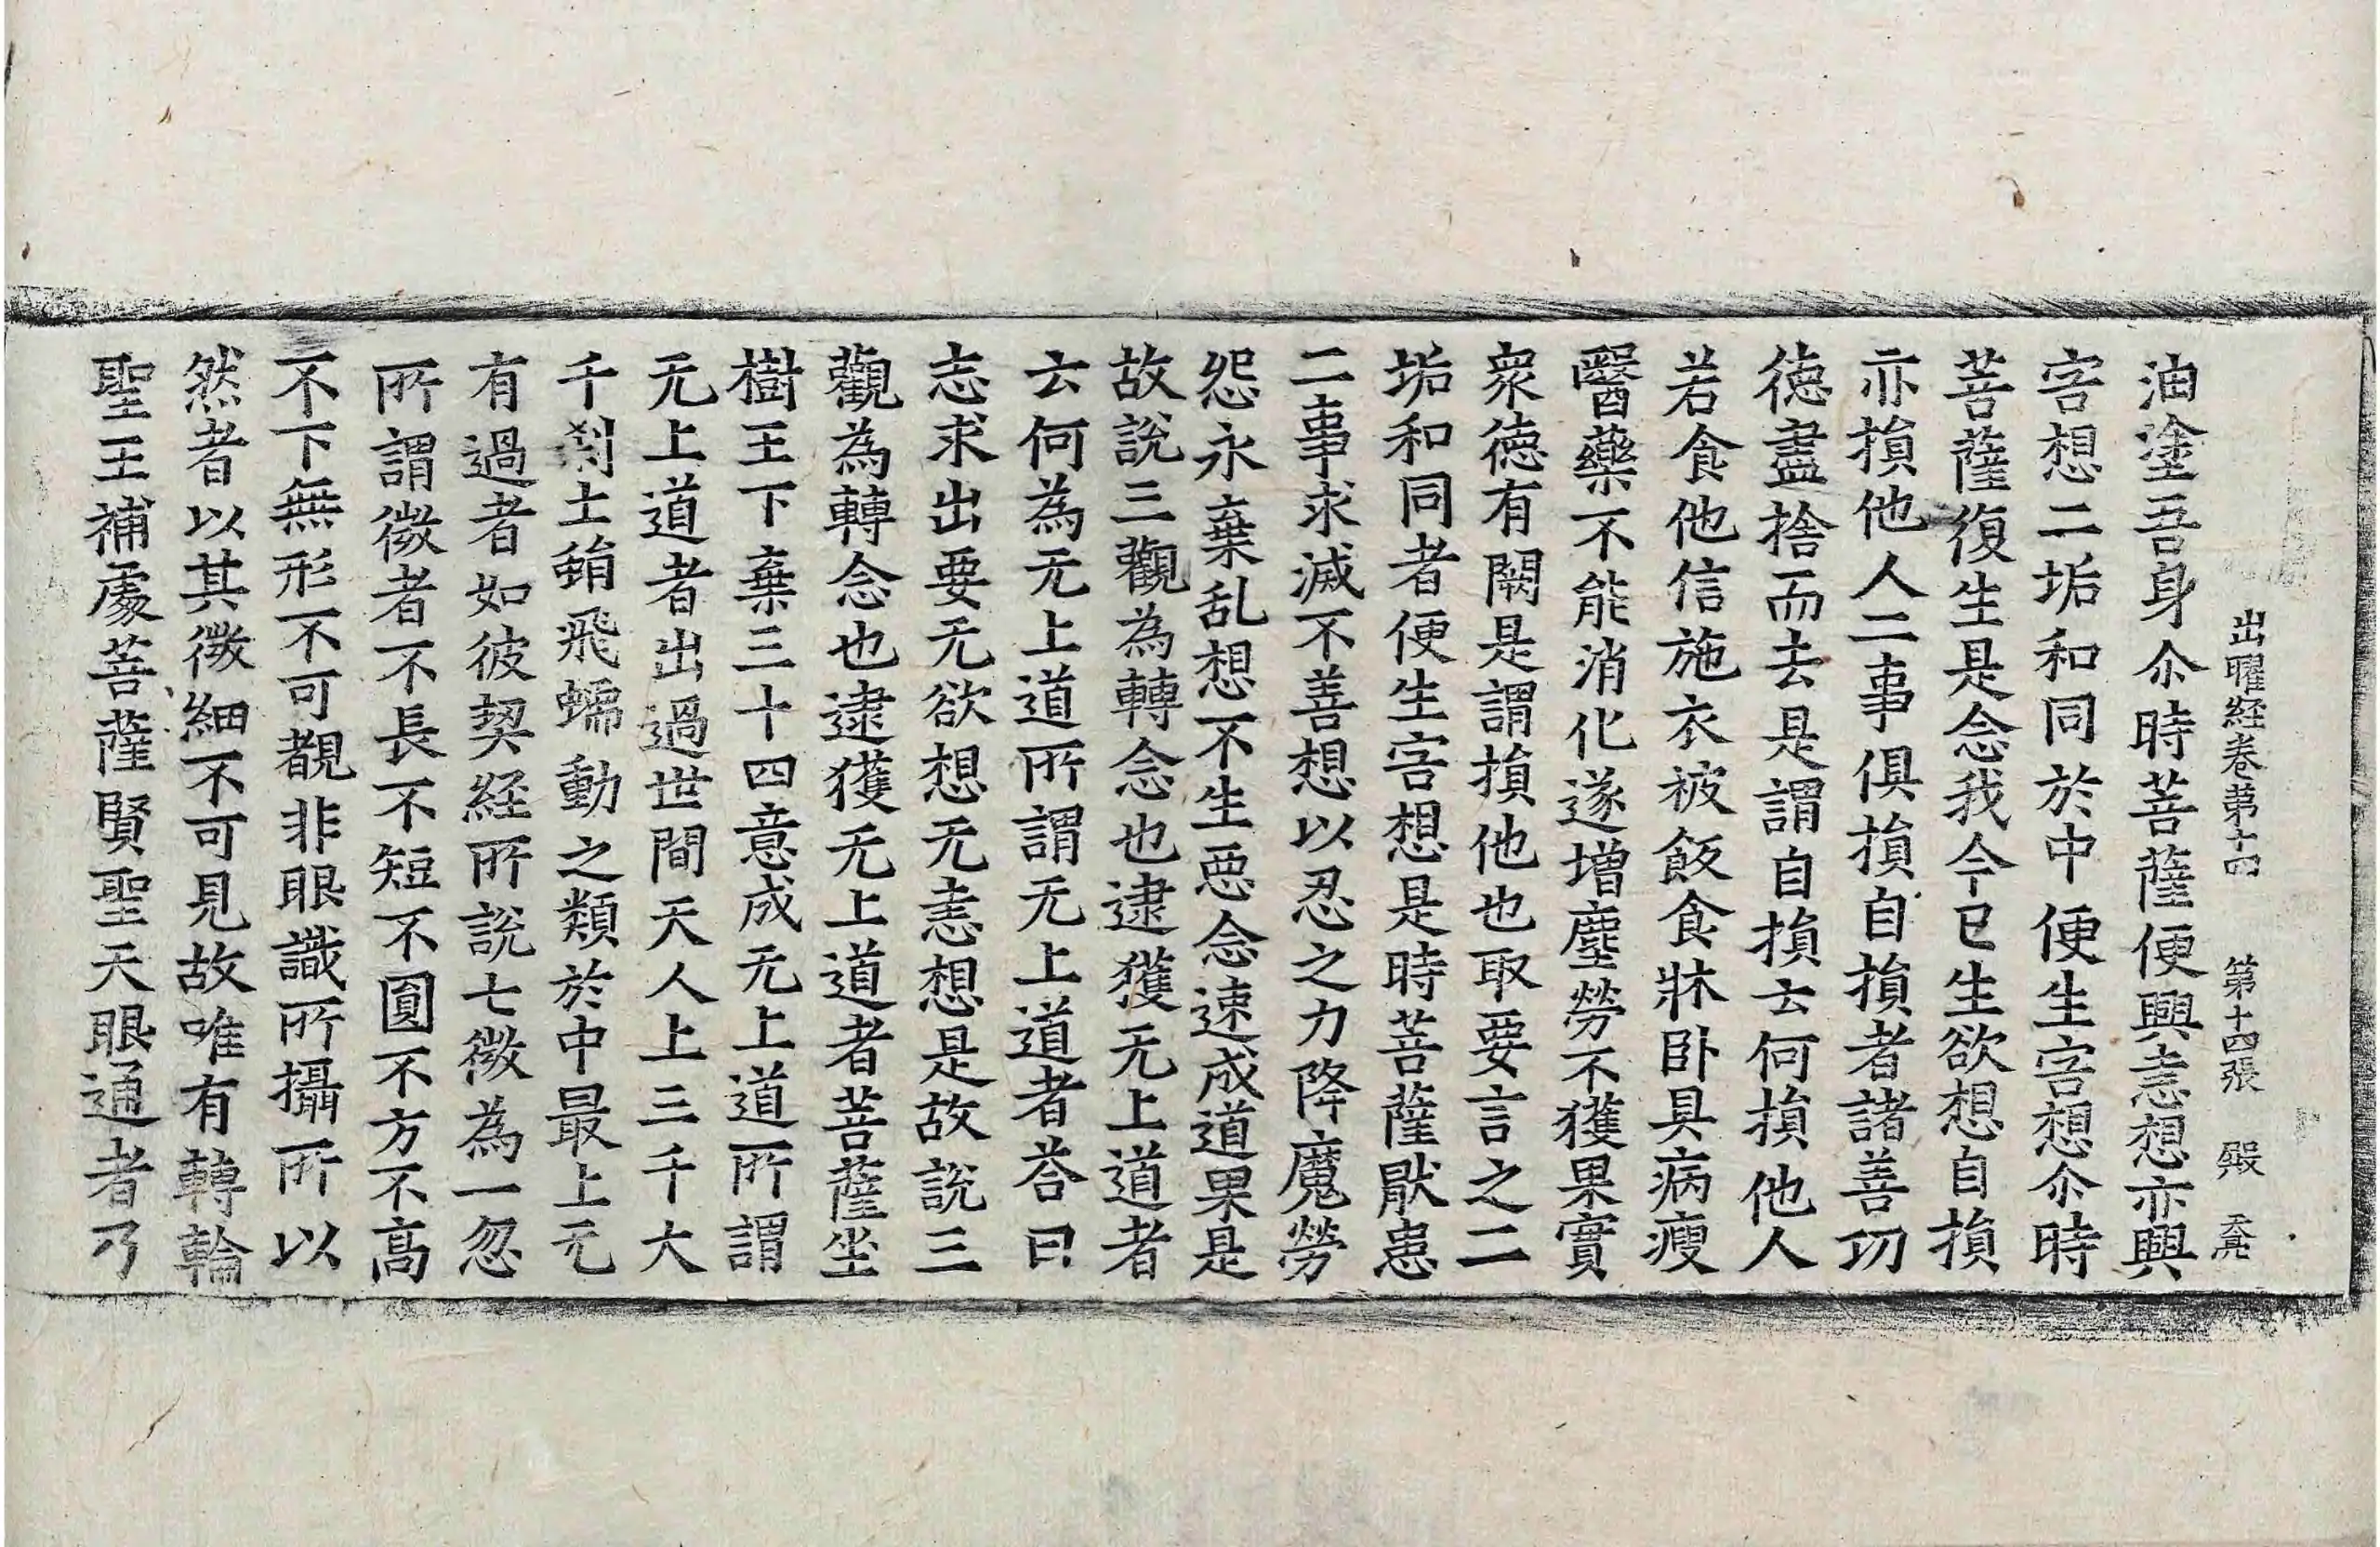 出曜経卷第十四 第十四張 殿
油塗吾身尒時菩薩便興恚想亦興
害想二垢和同於中便生害想尒時
菩薩復生是念我今已生欲想自損
亦損他人二事俱損自損者諸善功
徳盡捨而去是謂自損云何損他人
若食他信施衣被飯食牀卧具病瘦
醫藥不能消化遂增塵勞不獲果實
衆徳有闕是謂損他也取要言之二
垢和同者便生害想是時菩薩厭患
二事求滅不善想以忍之力降魔勞
怨永棄乱想不生惡念速成道果是
故說三觀為轉念也逮獲无上道者
云何為无上道所謂无上道者荅曰
志求出要无欲想无恚想是故說三
觀為轉念也逮獲无上道者菩薩坐
樹王下棄三十四意成无上道所謂
无上道者出過世間天人上三千大
千刹土蜎飛蠕動之類於中最上无
有過者如彼契経所說七微為一忽
所謂微者不長不短不圓不方不髙
不下無形不可覩非眼識所攝所以
然者以其微細不可見故唯有轉輪
聖王補處菩薩賢聖天眼通者乃